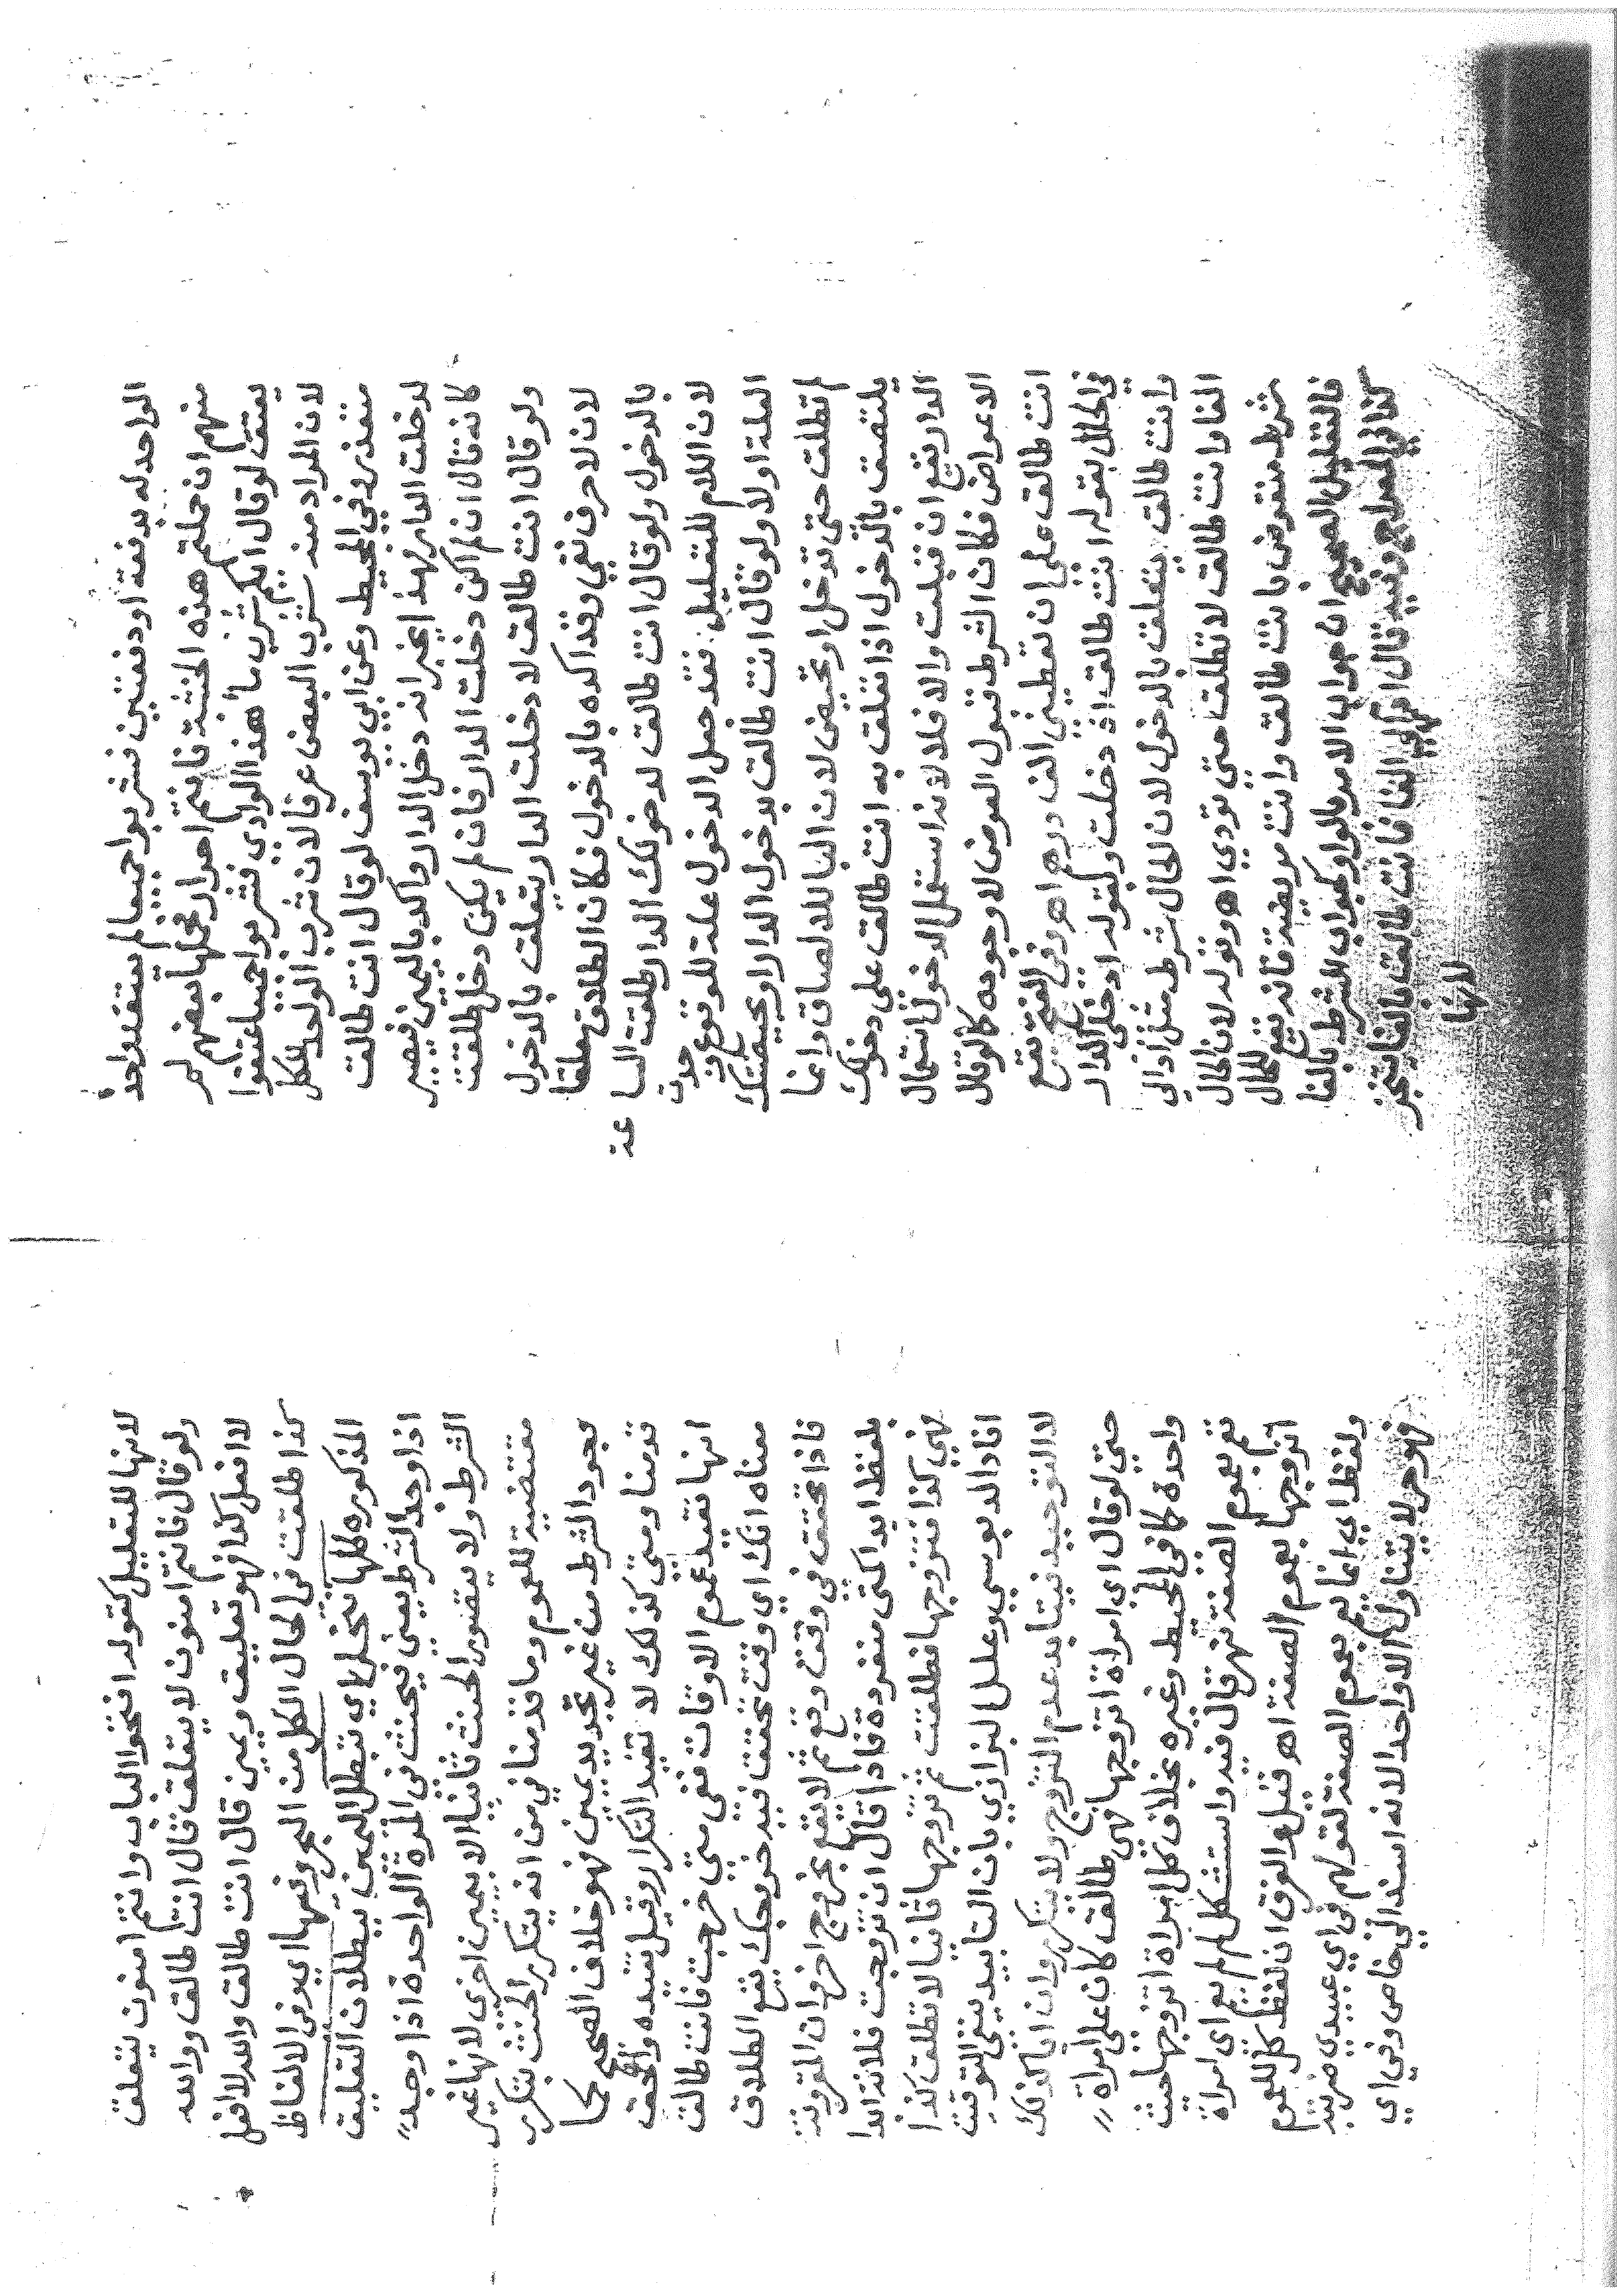 الواحد له بدفعة او دفعتين فشربوا جميعا لم يعتق واحد
منهم ان حملتم هذه الخشبة فانتم احرار فحملها بعضهم لم
يعتق لو قال ايكم شرب ماء هذا الوادي فشربوا جميعا عتقوا
لان المراد منه شرب البعض عرفا لان شرب الواحد للكل
متعذر وفي المحيط وعن ابي يوسف لو قال انت طالق
لدخلت الدار بهذا يخبر انه دخل الدار واكده باليمين فيصير
كانه قال ان لم اكن دخلت الدار فان لم يكن دخل طلقت
ولو قال انت طالق لا دخلت الدار يتعلق بالدخول
لان لا حرف نفي وقد اكده بالدخول فكان الطلاق معلقا
بالدخول ولو قال انت طالق لدخولك الدار طلقت الساعة
لان اللام للتعليل فقد جعل الدخول علة للوقوع وجدت
العلة اولا ولو قال انت طالق بدخول الدار او بحيضتك
لم تطلق حتى تدخل او تحيض لان البا للالصاق وانما
يلتصق بالدخول اذا تعلق به انت طالق على دخولك
الدار يقع ان قبلت والا فلا لانه استعمل الدخول استعمال
الاعواض فكان الشرط قبول العوض لا وجوده كما لو قال
انت طالق على ان تعطيني الف درهم اهـ وفي الفتح تقع
في الحال بقوله انت طالق اذ دخلت وبقوله ادخلي الدار
وانت طالق يتعلق بالدخول لان الحال شرط مثل ادي الي
الفا وانت طالق لا تطلق حتى تودي اهـ وقوله لان الحال
شرط منقوض بانت طالق وانت مريضة فانه يقع للحال
فالتعليل الصحيح ان جواب الامر بالواو كجواب الشرط بالفا
كذا في المعراج وفيه قال ادي الي الفا فانت طالق بالفا يتنجز
لانها
لانها للتعليل كقوله افتحوا الباب وانتم امنون يتعلق
ولو قال فانتم امنون لا يتعلق قال انت طالق ووالله
لا افعل كذا فهو تعليق ويمين قال انت طالق والله لا افعل
كذا طلقت في الحال الكل من البحر وفيها اي وفي الالفاظ
المذكوره كلها تنحل اي تبطل اليمين ببطلان التعليق
اذا وجد الشرط يعني فيحنث في المرة الواحدة اذا وجد
الشرط ولا يتصور الحنث ثانيا الا بيمين اخرى لانها غير
مقتضية للعموم وما قدمنا في من انه يتكرر الحنث بتكرر
وجود الشرط من غير تجديد يمين فهو خلاف الصحيح كما
قدمنا ومتى كذلك لا تفيد التكرار وقيل تفيده والحق
انها تفيد عموم الاوقات ففي متى خرجت فانت طالق
معناه انك اي وقت تحقق فيه خروجك يقع الطلاق
فاذا تحقق في وقت وقع ثم لا يقع بخروج اخر وان المقرونة
بلفظ ابدا كمتى منفردة فاذا قال ان تزوجت فلانة ابدا
فهي كذا فتزوجها فطلقت ثم تزوجها ثانيا لا تطلق كذا
افاد الدبوسي وعلل البزازي بان التابيد ينفي التوقيت
لا التوحيد فيتابد عدم التزوج ولا يتكرر وان ايا كذلك
حتى لو قال اي امراة اتزوجها فهي طالق كان على امراة
واحدة كما في المحيط وغيره بخلاف كل امراة اتزوجها حيث
تعم بعموم الصفة نهر قال فيه واستشكل لم لم يعم اي امراة
اتزوجها بعموم الصفة اهـ قيل والفرق ان لفظ كل للعموم
ولفظ اي انما يعم بعموم الصفة لقولهم في اي عبيدي ضربته
فهو حر لا يتناول الا واحدا لانه اسند الى خاص وفي اي